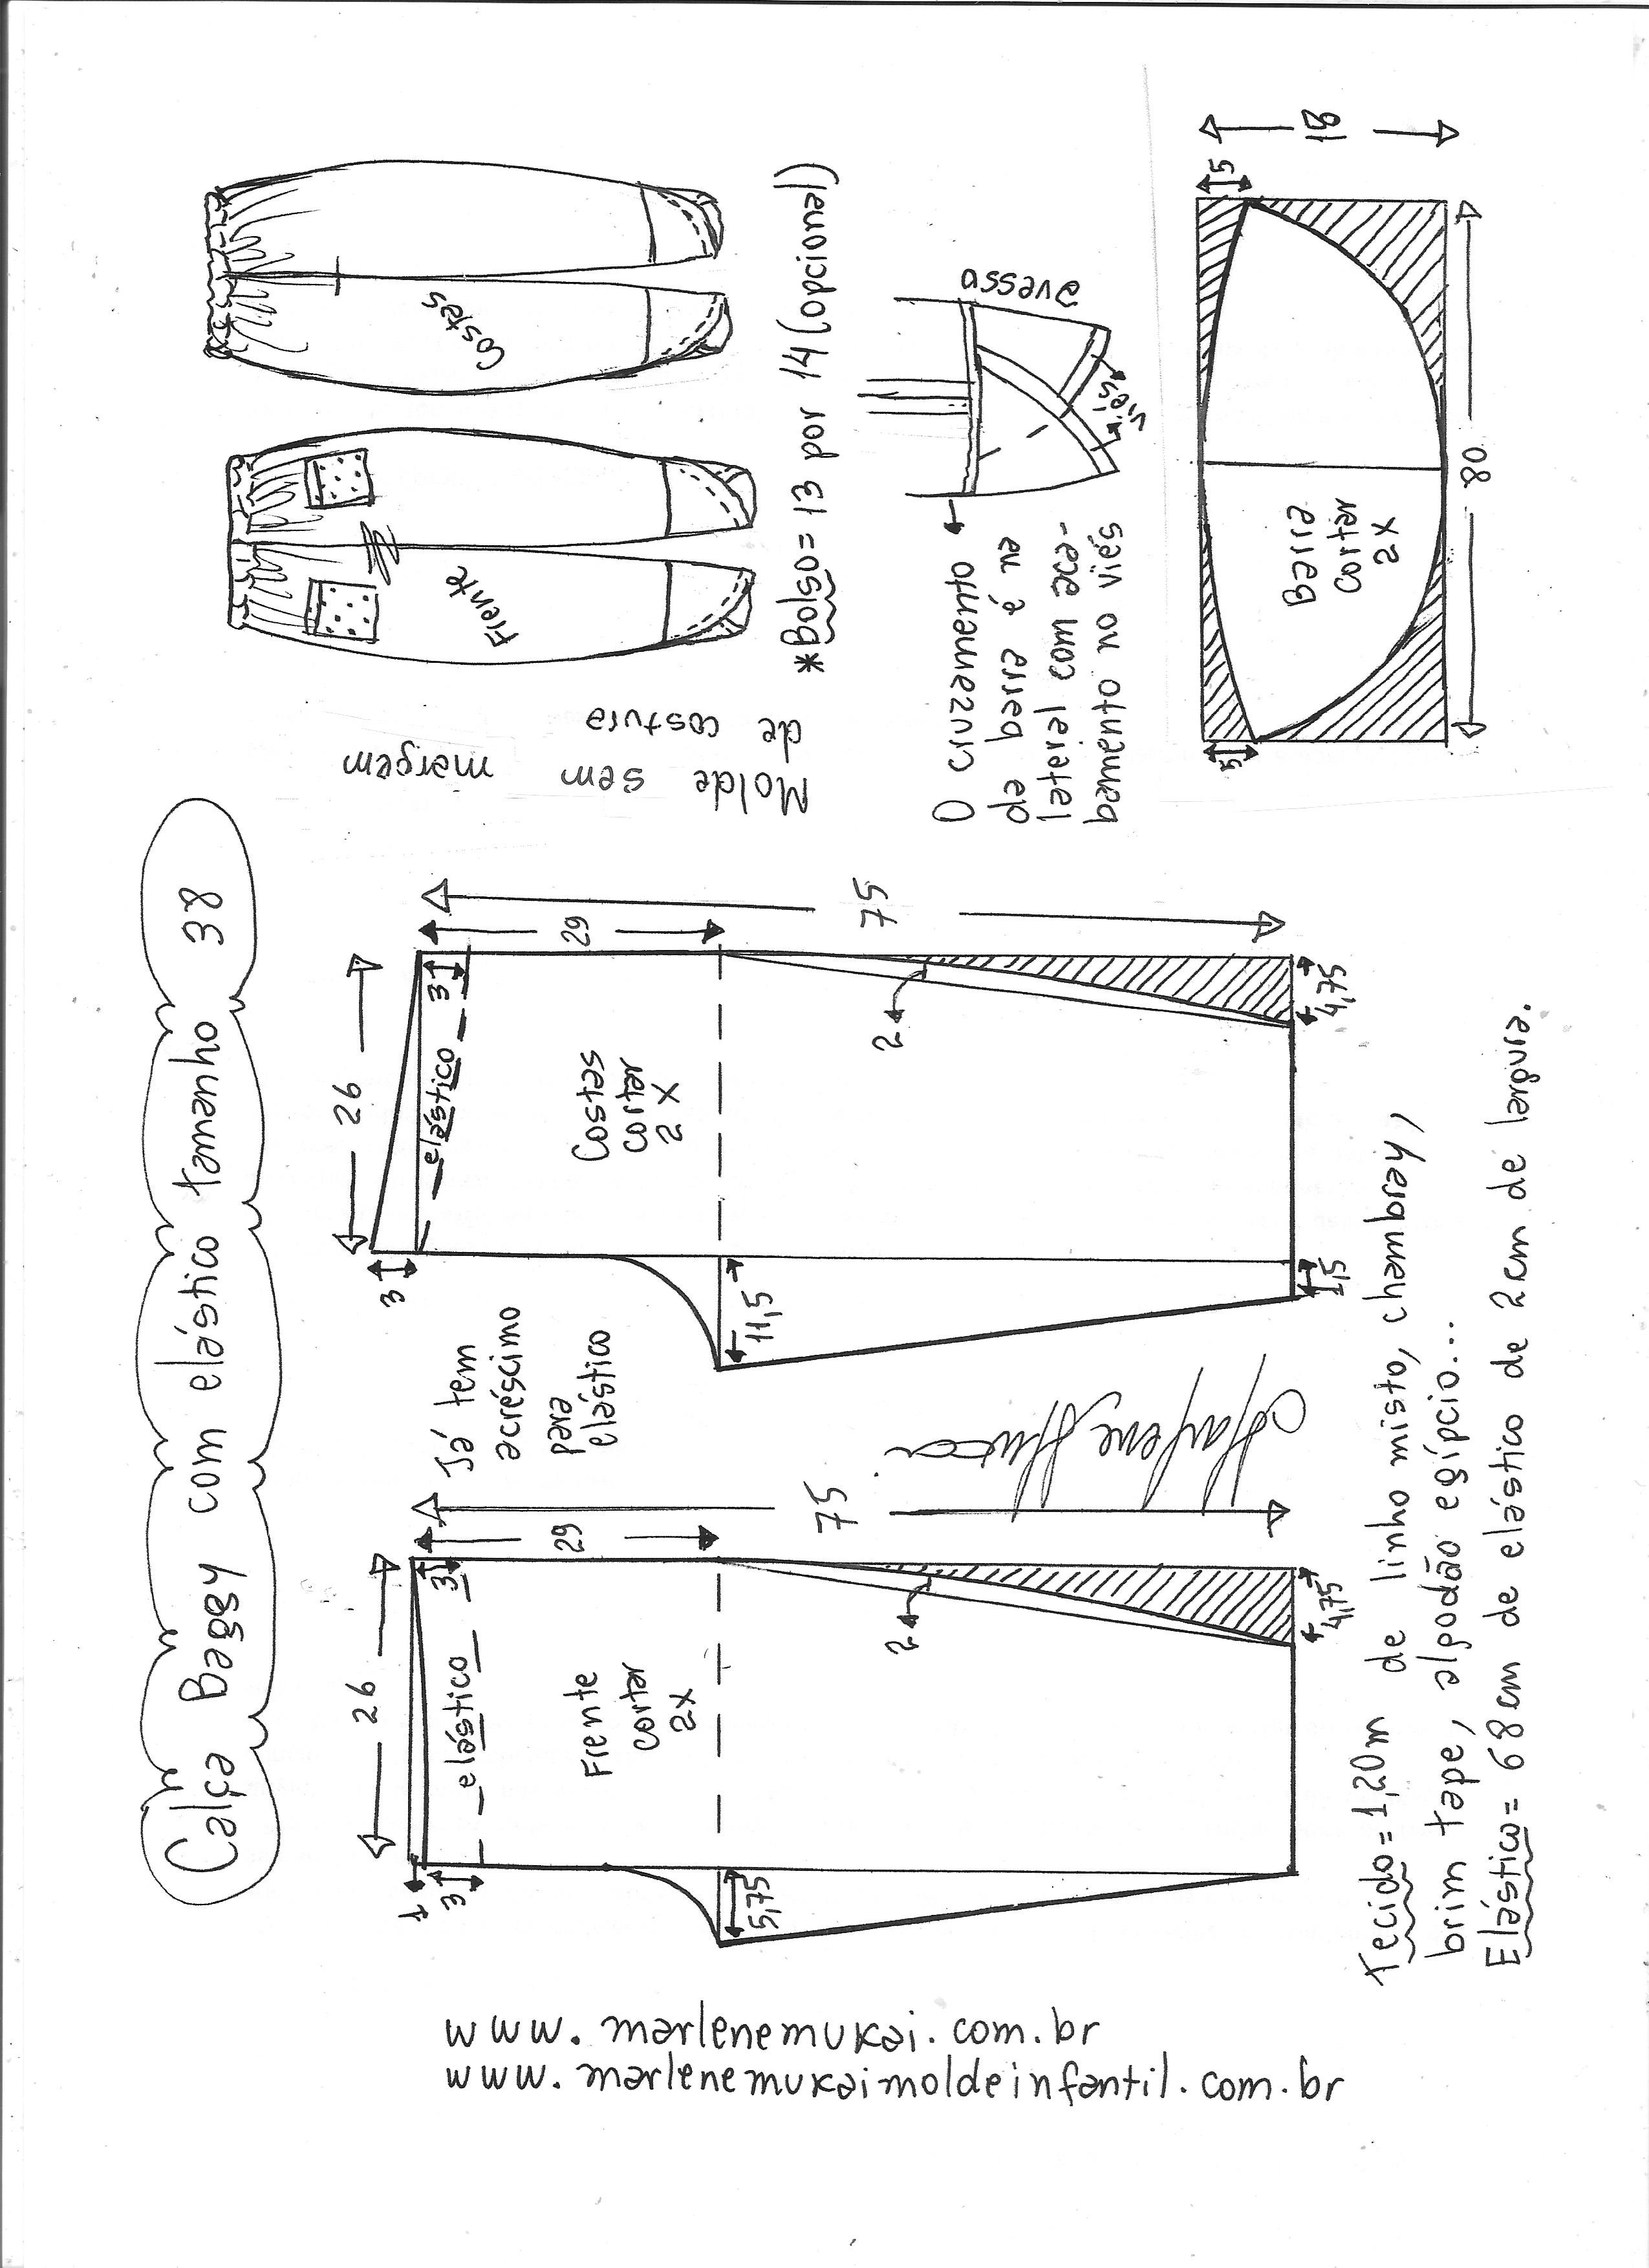 Calça Baggy com elástico tamanho 38
26
1
3
3
elástico
29
75
Frente
cortar
2x
2
5,75
4,75
Já tem
acréscimo
para
elástico
26
3
3
elástico
29
75
Costas
cortar
2X
2
11,5
1,5
4,75
Molde sem margem
de costura
Frente
Costas
*Bolso=13 por 14(opcional)
O cruzamento
da barra é na
lateral com aca-
bamento no viés
avesso
viés
5
5
18
80
Barra
cortar
2X
Tecido=1,20m de linho misto, chambray,
brim tape, algodão egípcio...
Elástico=68cm de elástico de 2cm de largura.
www.marlenemukai.com.br
www.marlenemukaimoldeinfantil.com.br